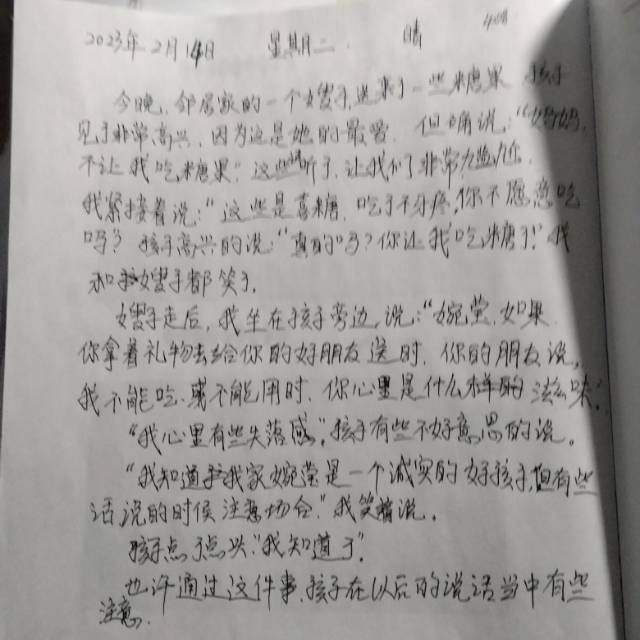 2023年2月14日 星期二 晴
今晚,邻居家的一个嫂子送来了一些糖果,孩子
见了非常高兴,因为这是她的最爱。但确说:“妈妈,
不让我吃糖果。”这些话听了,让我们了非常尴尬。
我紧接着说:“这些是喜糖,吃了不牙疼,你不愿意吃
吗?孩子高兴的说:“真的吗?你让我吃糖了!”我
和嫂子都笑了。
嫂子走后,我坐在孩子旁边说:“婉莹,如果
你拿着礼物去给你的好朋友送时,你的朋友说,
我不能吃、或不能用时,你心里是什么样的滋味。”
“我心里有些失落感。”孩子有些不好意思的说。
“我知道我家婉莹是一个诚实的好孩子,但有些
话说的时候注意场合。”我笑着说。
孩子点点头“我知道了”。
也许通过这件事,孩子在以后的说话当中有些
注意.